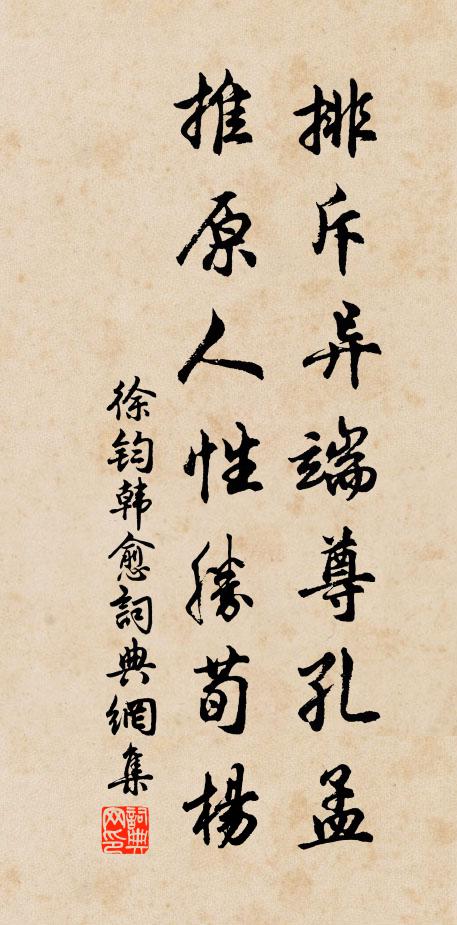 排斥异端尊孔孟
推原人性勝荀楊
徐钧韩愈詞典網集
詞典网印